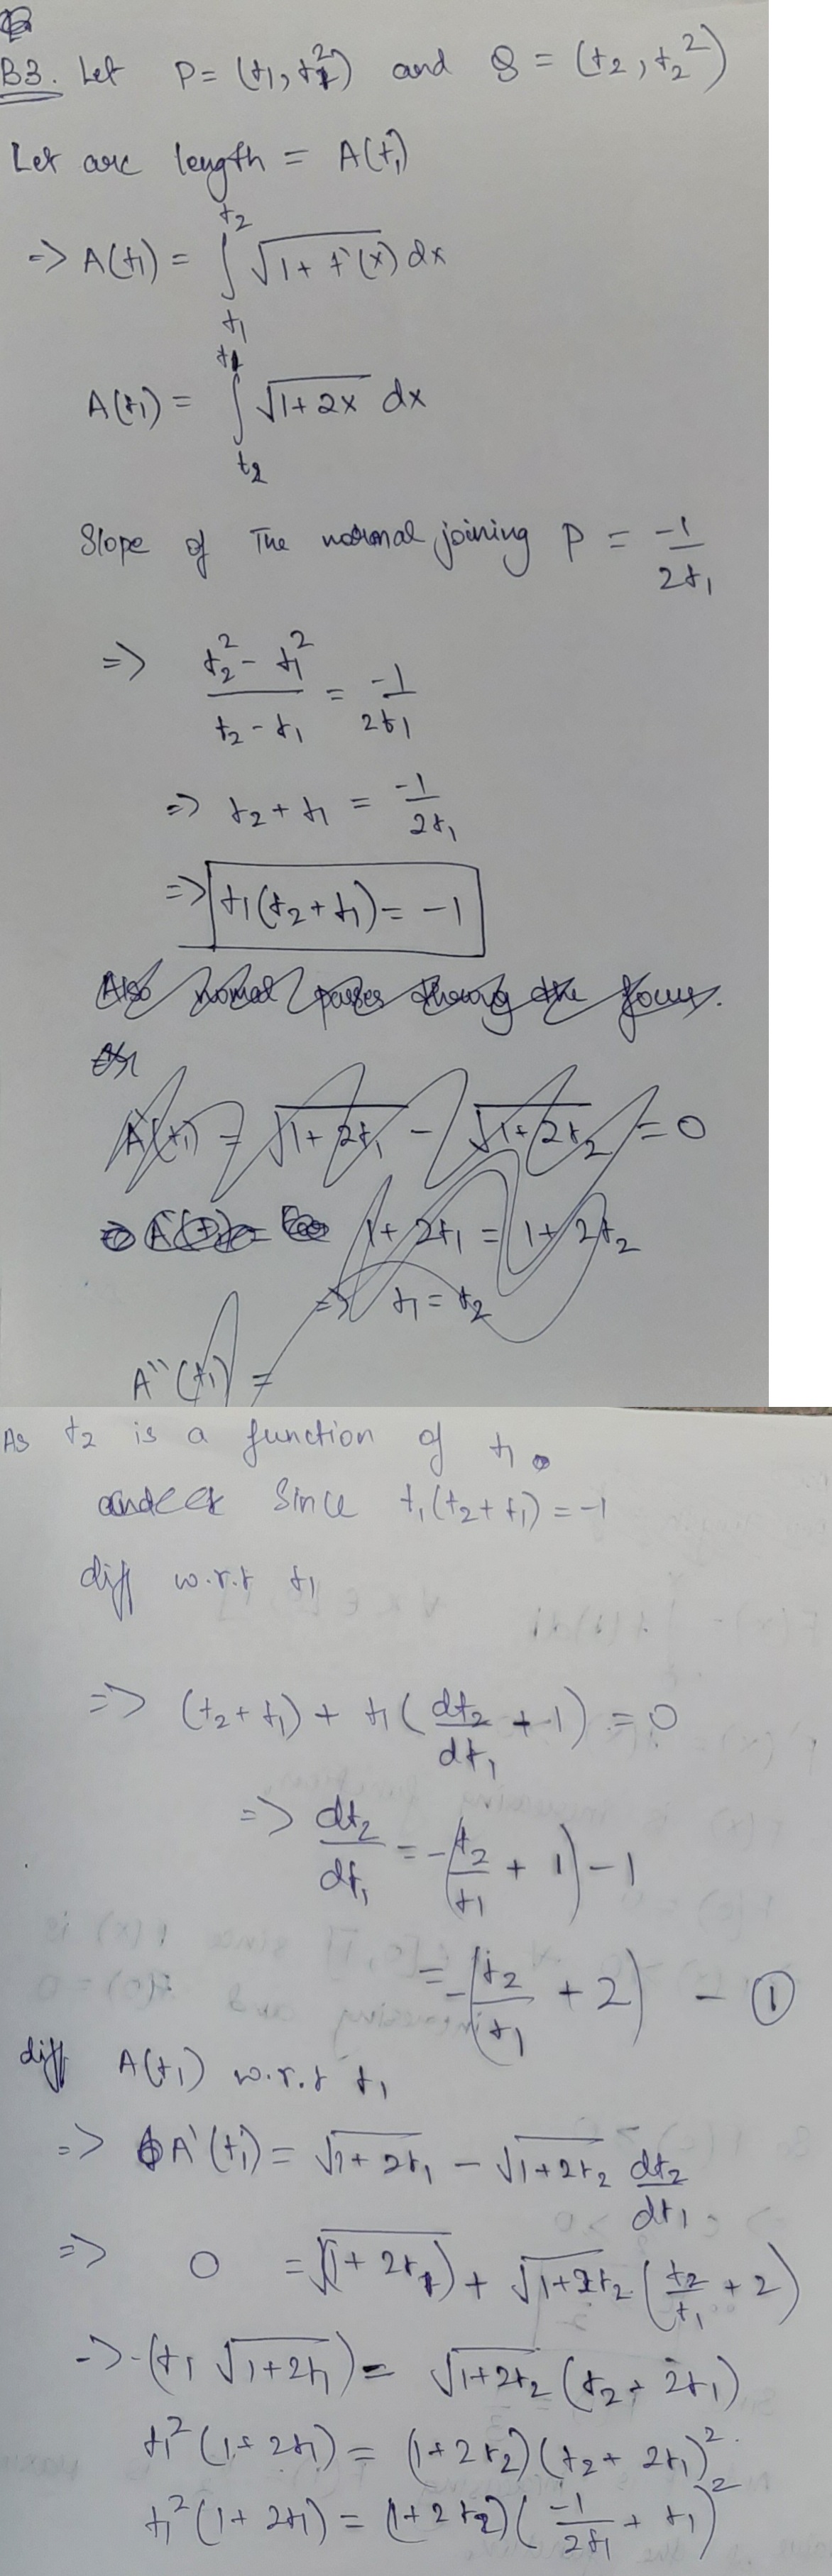 B3. Let P = (t₁, t₁²) and Q = (t₂, t₂²)
Let arc length = A(t₁)
=> A(t₁) = ∫_{t₁}^{t₂} √(1 + f'(x)) dx
A(t₁) = ∫_{t₂}^{t₁} √(1+2x) dx
Slope of The normal joining P = -1/2t₁
=> (t₂² - t₁²)/(t₂ - t₁) = -1/2t₁
=> t₂ + t₁ = -1/2t₁
=> t₁(t₂ + t₁) = -1
Also normal passes throug the focus.
A'(t₁) = √(1+2t₁) - √(1+2t₂) = 0
=> A'(t₁) =
1+2t₁ = 1+2t₂
=> t₁ = t₂
A''(t₁) =
As t₂ is a function of t₁.
Since t₁(t₂ + t₁) = -1
diff w.r.t t₁
=> (t₂ + t₁) + t₁(dt₂/dt₁ + 1) = 0
=> dt₂/dt₁ = -(t₂/t₁ + 1) - 1
= -(t₂/t₁ + 2) - ①
diff A(t₁) w.r.t t₁
=> A'(t₁) = √(1+2t₁) - √(1+2t₂) dt₂/dt₁
=> 0 = √(1+2t₁) + √(1+2t₂) (t₂/t₁ + 2)
=> -(t₁ √(1+2t₁)) = √(1+2t₂) (t₂ + 2t₁)
t₁²(1+2t₁) = (1+2t₂)(t₂ + 2t₁)²
t₁²(1+2t₁) = (1+2t₂)(-1/2t₁ + t₁)²